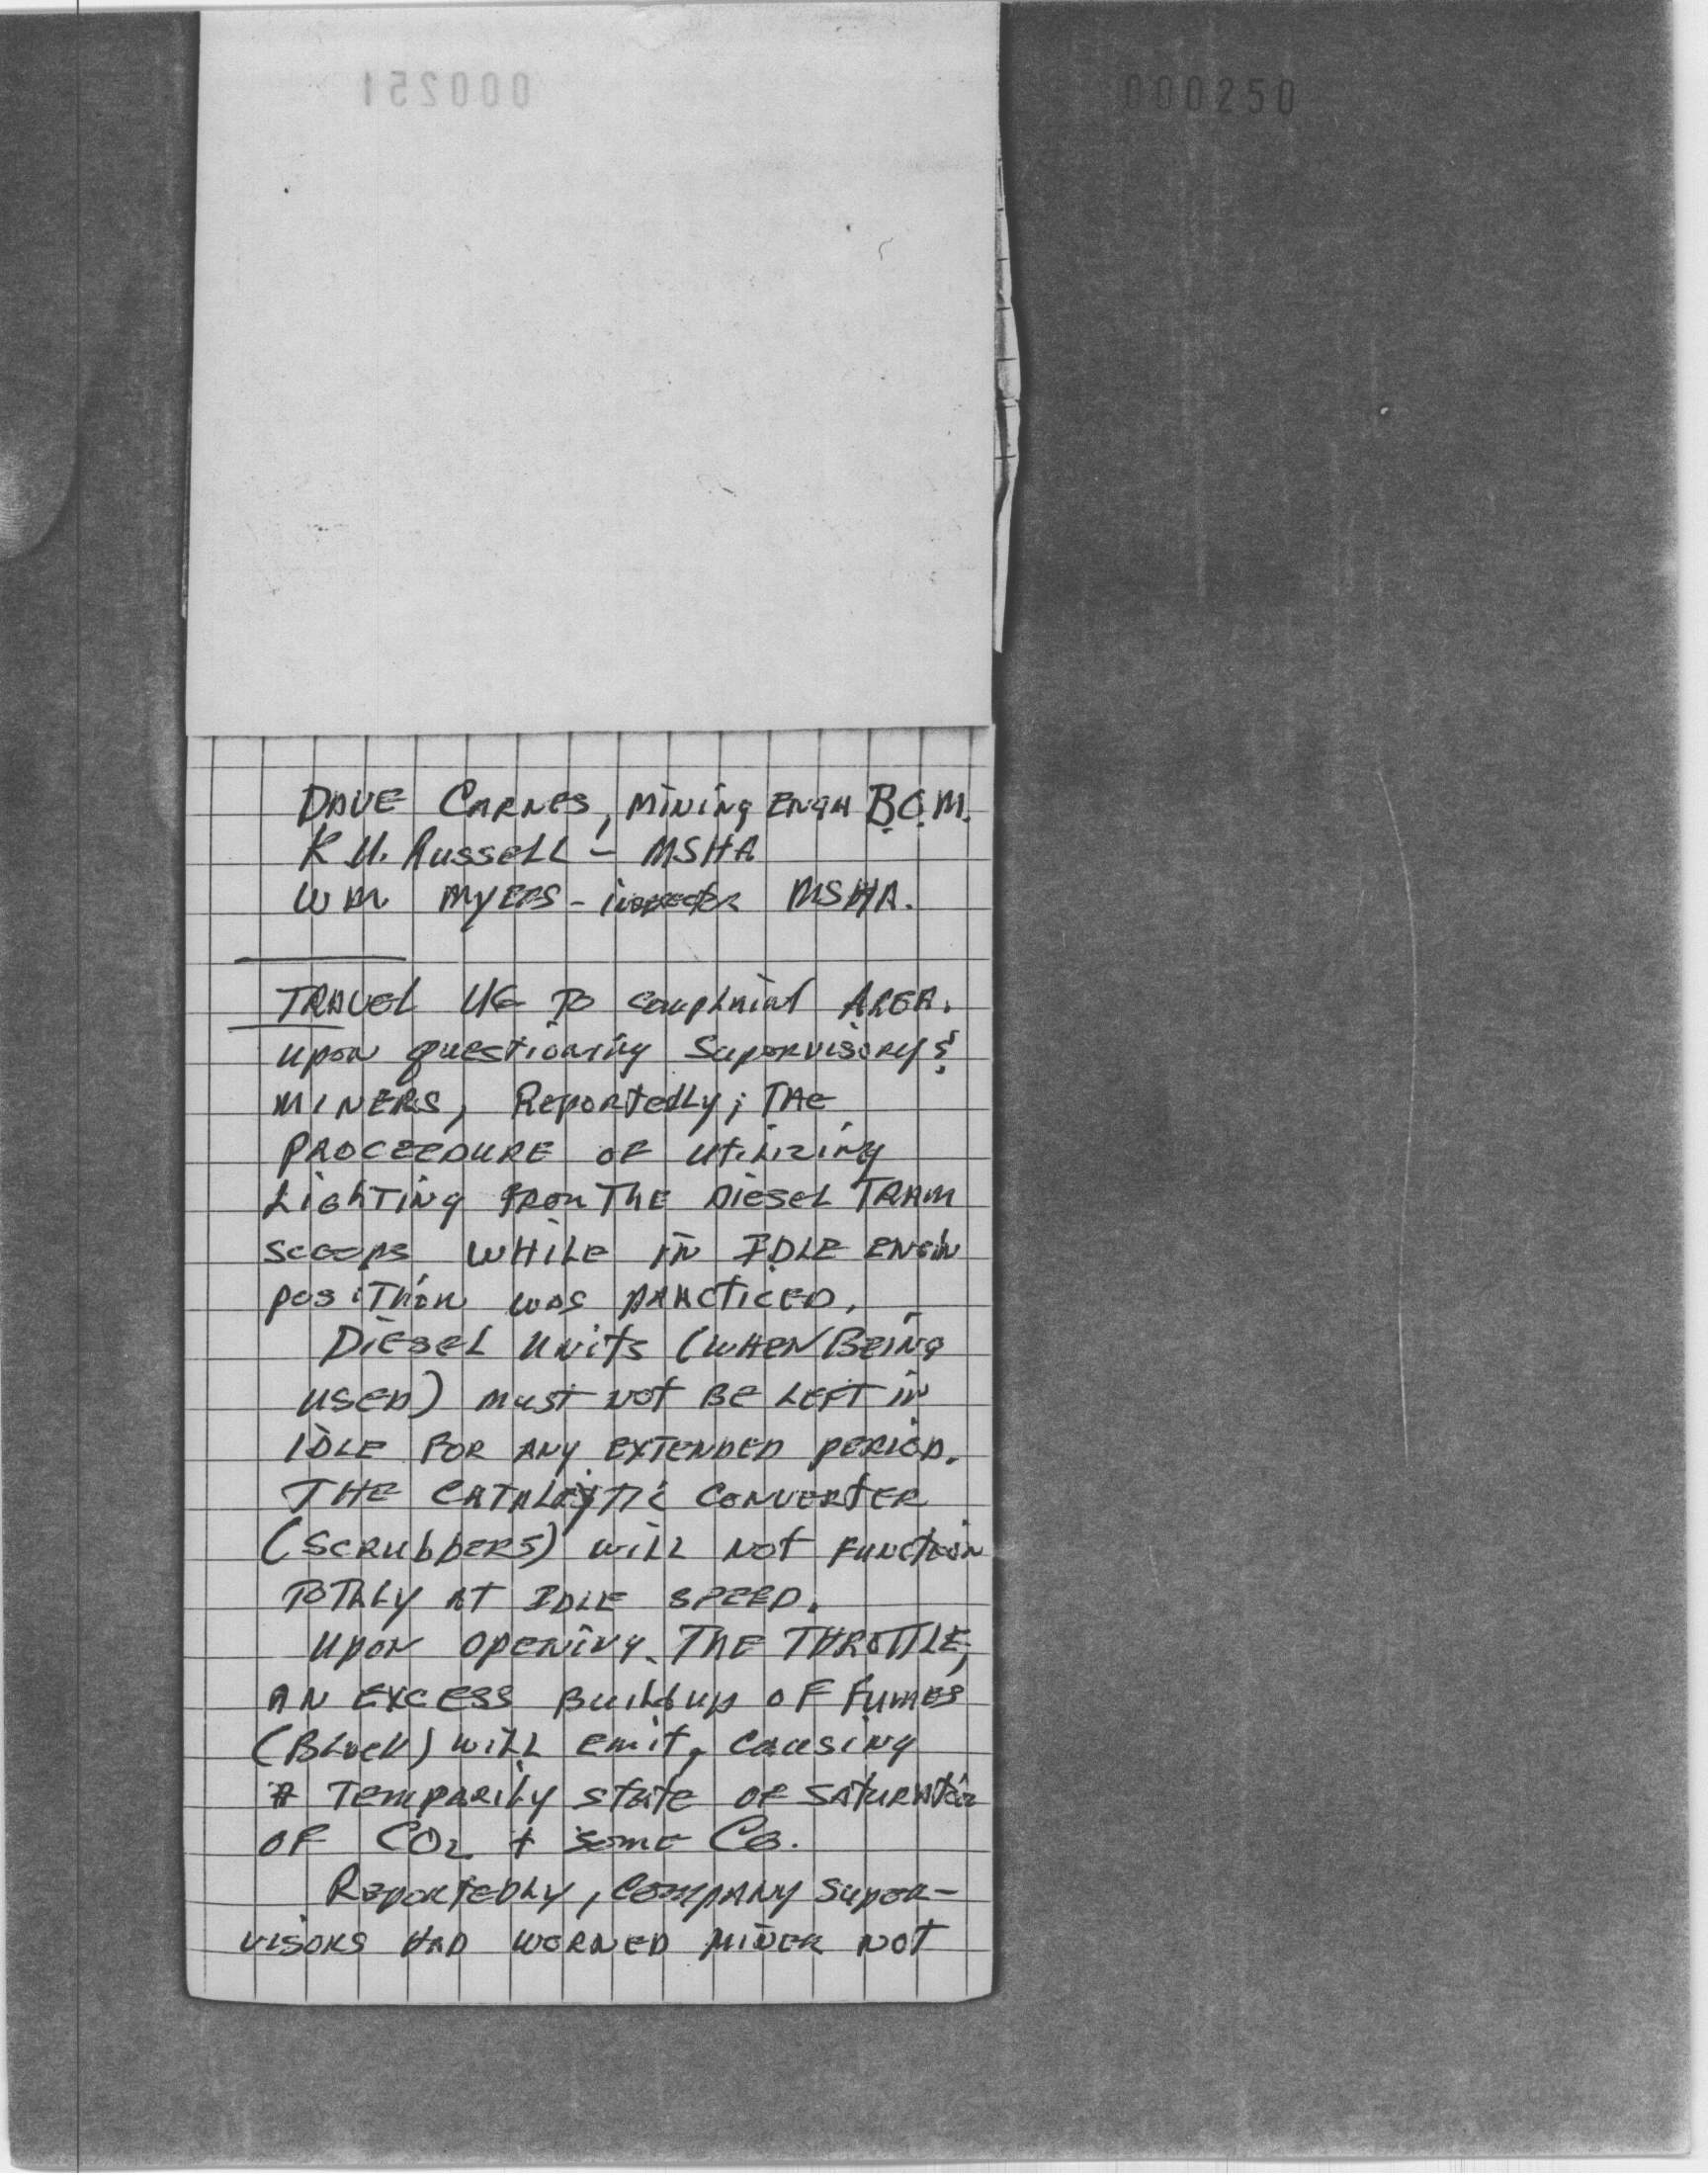 000251
000250
DAVE CARNES, MINING ENGR B.O.M.
RUSSELL - MSHA
WM MYERS - inspector MSHA.
TRAVEL UG TO complaint AREA.
upon questioning Supervisory &
MINERS, Reportedly; THE
PROCEEDURE OF UTILIZING
LIGHTING FROM THE DIESEL TRAM
SCOOPS WHILE IN IDLE ENGIN
POSITION WAS PRACTICED.
DIESEL UNITS (WHEN BEING
USED) must NOT BE LEFT IN
IDLE FOR ANY EXTENDED PERIOD.
THE CATALYTIC CONVERTER
(SCRUBBERS) WILL NOT FUNCTION
TOTALY AT IDLE SPEED.
UPON OPENING THE THROTTLE,
AN EXCESS Buildup OF FUMES
(BLACK) WILL EMIT, CAUSING
A TEMPARILY STATE OF SATURATION
OF CO2 + SOME CO.
REPORTEDLY, COMPANY SUPER-
VISORS HAD WORNED MINER NOT